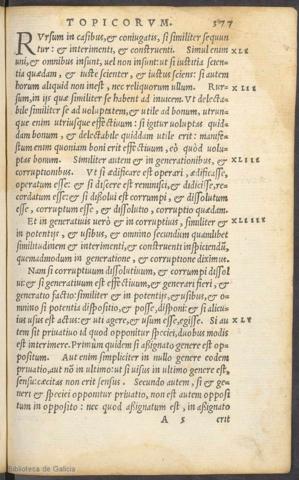 TOPICORVM. 377
RVrsum in casibus, et coniugatis, si similiter sequun
tur: & interimenti, & construenti. Simul enim XLI
uni, et omnibus insunt, uel non insunt: ut si iustitia scien-
tia quædam, & iuste scienter, & iustus sciens: si autem
horum aliquid non inest, nec reliquorum ullum. Rur- XLII
sum, in ijs quæ similiter se habent ad inuicem. Vt delecta-
bile similiter se ad uoluptatem, & utile ad bonum, utrun-
que enim utriusque effectiuum: si igitur uoluptas quid-
dam bonum, & delectabile quiddam utile erit: manife-
stum enim quoniam boni erit effectiuum, eò quòd uolu-
ptas bonum. Similiter autem & in generationibus, & XLIII
corruptionibus. Vt si ædificare est operari, ædificasse,
operatum esse: & si discere est reminisci, & didicisse, re-
cordatum esse: & si dissolui est corrumpi, & dissolutum
esse, corruptum esse, & dissolutio, corruptio quædam.
Et in generatiuis uerò & in corruptiuis, similiter & XLIIII
in potentijs, & usibus, & omnino secundum quamlibet
similitudinem & interimenti, & construenti inspiciendũ,
quemadmodum in generatione, & corruptione diximus.
Nam si corruptiuum dissolutiuum, & corrumpi dissol
ui: & si generatiuum est effectiuum, & generari fieri, &
generatio factio: similiter & in potentijs, & usibus, & o-
mnino si potentia dispositio, & posse, disponi: & si alicu-
ius usus est actus: & uti agere, & usum esse, egisse. Si au XLV
tem sit priuatio id quod opponitur speciei, duobus modis
est interimere. Primùm quidem si aßignato genere est op-
positum. Aut enim simpliciter in nullo genere eodem
priuatio, aut nõ in ultimo: ut si uisus in ultimo genere est,
sensu: cæcitas non erit sensus. Secundo autem, si & ge-
neri & speciei opponitur priuatio, non est autem opposi
tum in opposito: nec quod aßignatum est, in aßignato
A 5 erit
Biblioteca de Galicia